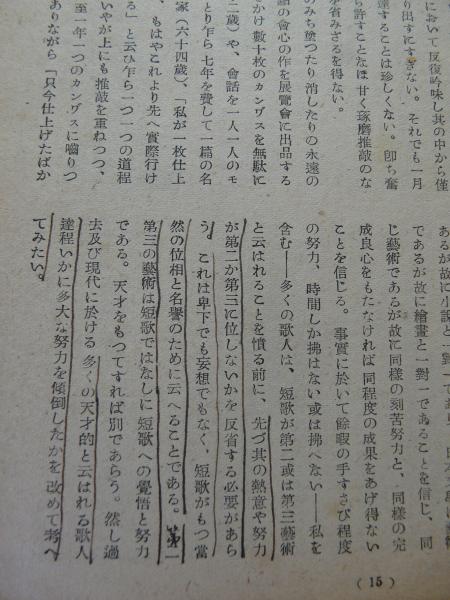 において反復吟味し其の中から僅
り出すにすぎない。それでも一月
達することは珍しくない。卽ち奮
ら許すことなほ甘く琢磨推敲のな
事省みざるを得ない。
のみち塗つたり消したりの永遠の
語の會心の作を展覽會に出品する
かけ數十枚のカンヴスを無駄に
二歲)や、會話を一人一人のモ
とり乍ら七年を費して一篇の名
家(六十四歲)、「私が一枚仕上
、もはやこれより先へ實際行け
る」と云ひ乍ら一つ一つの道程
いやが上にも推敲を重ねつつ、
至一年一つのカンヴスに嚙りつ
ありながら「只今仕上げたばか
であるが故に繪畫と一對一であることを信じ、同
じ藝術であるが故に同樣の刻苦努力と、同樣の完
成良心をもたなければ同程度の成果をあげ得ない
ことを信じる。事實に於いて餘暇の手すさび程度
の努力、時間しか拂はない或は拂へない――私を
含む――多くの歌人は、短歌が第二或は第三藝術
と云はれることを憤る前に、先づ其の熱意や努力
が第二か第三に位しないかを反省する必要があら
う。これは卑下でも妄想でもなく、短歌がもつ當
然の位相と名譽のために云へることである。第二
第三の藝術は短歌ではなしに短歌への覺悟と努力
である。天才をもつてすれば別であらう。然し過
去及び現代に於ける多くの天才的と云はれる歌人
達程いかに多大な努力を傾倒したかを改めて考へ
てみたい。
(15)